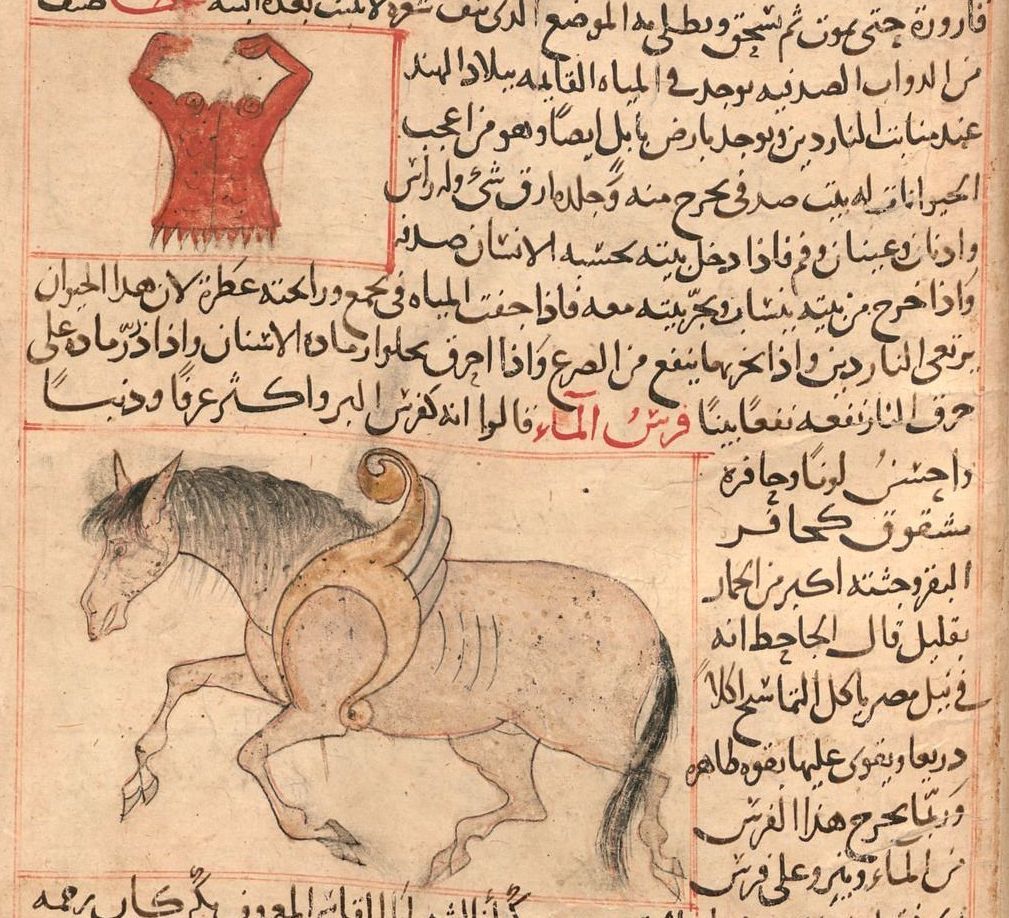 قارورة حتى يموت ثم يسحق ويطلى به الموضع الذي ينتف شعره لا ينبت بعده البتة صنف
من الدواب الصدفيه يوجد في المياه القايمه ببلاد الهند
عند منابت الناردين ويوجد بارض بابل ايضا وهو من اعجب
الحيوانات له بيت صدفي يخرج منه وجلده ارق شئ وله راس
واذنان وعينان وفم فاذا دخل بيته يحسبه الانسان صدفه
واذا خرج من بيته ينساب ويجر بيته معه فاذا جفت المياه في يجمع ورايحته عطرة لان هذا الحيوان
يرتعي الناردين واذا بخر بها ينفع من الصرع واذا احرق يجلوا رماده الاسنان واذا ذر رماده على
حرق النار نفعه نفعا بينا فرس الماء قالوا انه كفرس البر واكثر عرفا وذنبا
واحسن لونا وحافره
مشقوق كحافر
البقر وجثته اكبر من الحمار
بقليل قال الجاحظ انه
في نيل مصر ياكل التماسيح اكلا
ذريعا ويقوى عليها بقوه ظاهره
وربما يخرج هذا الفرس
من الماء وينزو على فرس
المعروف كان رحمه